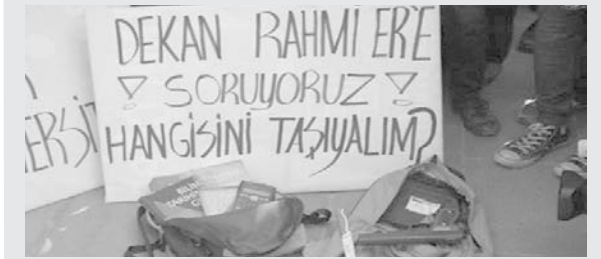 DEKAN RAHMİ ER'E
! SORUYORUZ !
HANGİSİNİ TAŞIYALIM?
ERSİT